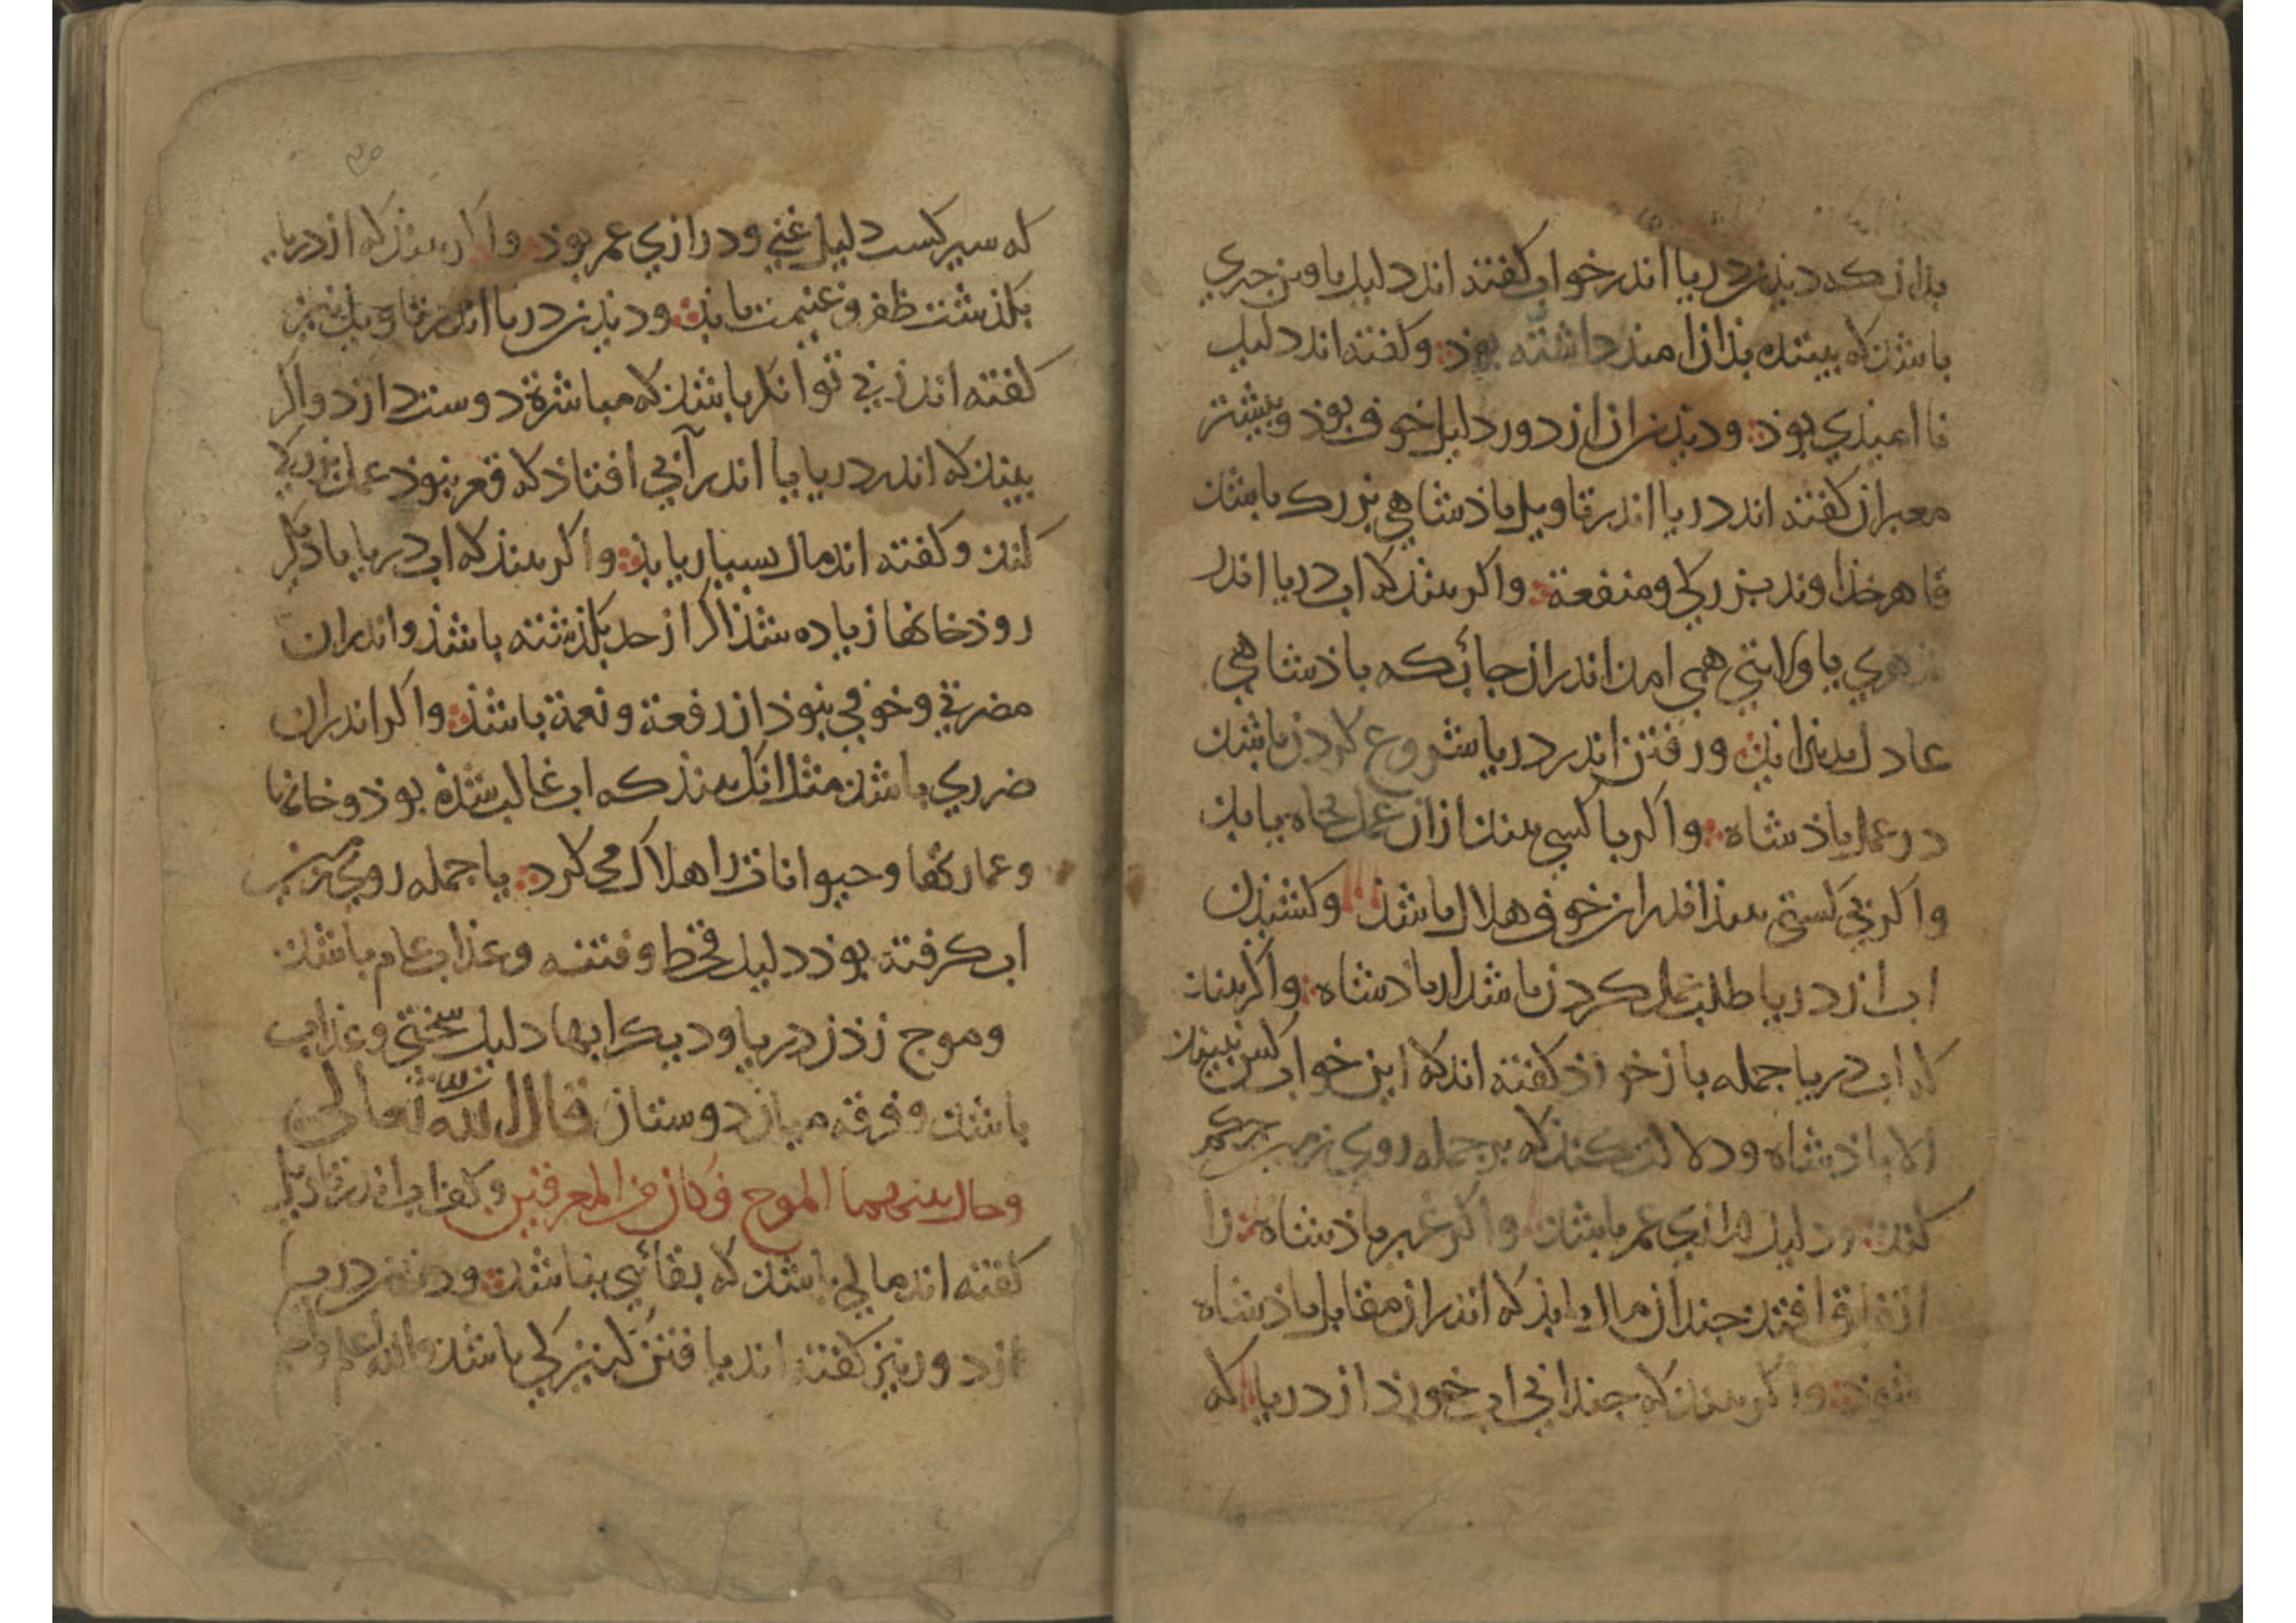 بدان که دیذن دریا اندر خواب کفته اند دلیل یافتن چیزی
باشذ که بیننده بذان امیذ داشته بوذ وکفته اند دلیل
نا امیذی بوذ ودیذن ان از دور دلیل خوف بوذ وبیشتر
معبران کفته اند دریا اندر تاویل پاذشاهی بزرک باشذ
قاهر خذاوند بزرکی ومنفعة واکر بیند که اب دریا اندر
یا ولایتی همی امذ اندر ان جایکه پاذشاهی
عادل ورفتن اندر دریا شروع کردن باشذ
در عمل پاذشاه واکر با کسی بیند از ان عمل جاه یابذ
واکر بی کشتی بیند اندر ان خوف هلاک باشذ وکشیذن
اب از دریا طلب عمل کردن باشد از پادشاه واکر بیند
که اب دریا جمله باز خورذ کفته اند که این خواب کس نبیند
الا پاذشاه ودلالت کند که بر جمله روی زمین حکم
کند ودلیل درازی عمر باشذ واکر غیر پاذشاه را
اتفاق افتد چندان مال یابذ که اندر ان مقابل پاذشاه
شوذ واکر بیند که چندانی اب خورد از دریا که
که سیر کشت دلیل غنی ودرازی عمر بوذ واکر بیند که از دریا
بکذشت ظفر وغنیمت یابذ ودیذن دریا اندر تاویل نیز
کفته اند زنی توانکر باشذ که مباشرة دوست دارد واکر
بیند که اندر دریا یا اندر آبی افتاد که قعر نبوذ عمل بزرکی
کند وکفته اند مال بسیار یابذ واکر بیند که اب دریا یا دیکر
روذخانها زیاده شذ اکر از حد بکذشته باشذ واندران
مضرتی وخوفی نبوذ ان رفعة ونعمة باشذ واکر اندران
ضرری باشذ مثلا انک بیند که اب غالب شذه بوذ وخانها
وعمارتها وحیوانات را هلاک می کرد یا جمله روی زمین
اب کرفته بوذ دلیل قحط وفتنه وعذاب عام باشذ
وموج زدن دریا ودیکر ابها دلیل سختی وعذاب
باشذ وفرقه میان دوستان قال الله تعالى
وحال بينهما الموج فكان من المغرقين وکف اب اندر تاویل
کفته اند مالی باشذ که بقائی نباشذ ودیذن دریا
از دور نیز کفته اند یافتن کنیزکی باشذ والله اعلم